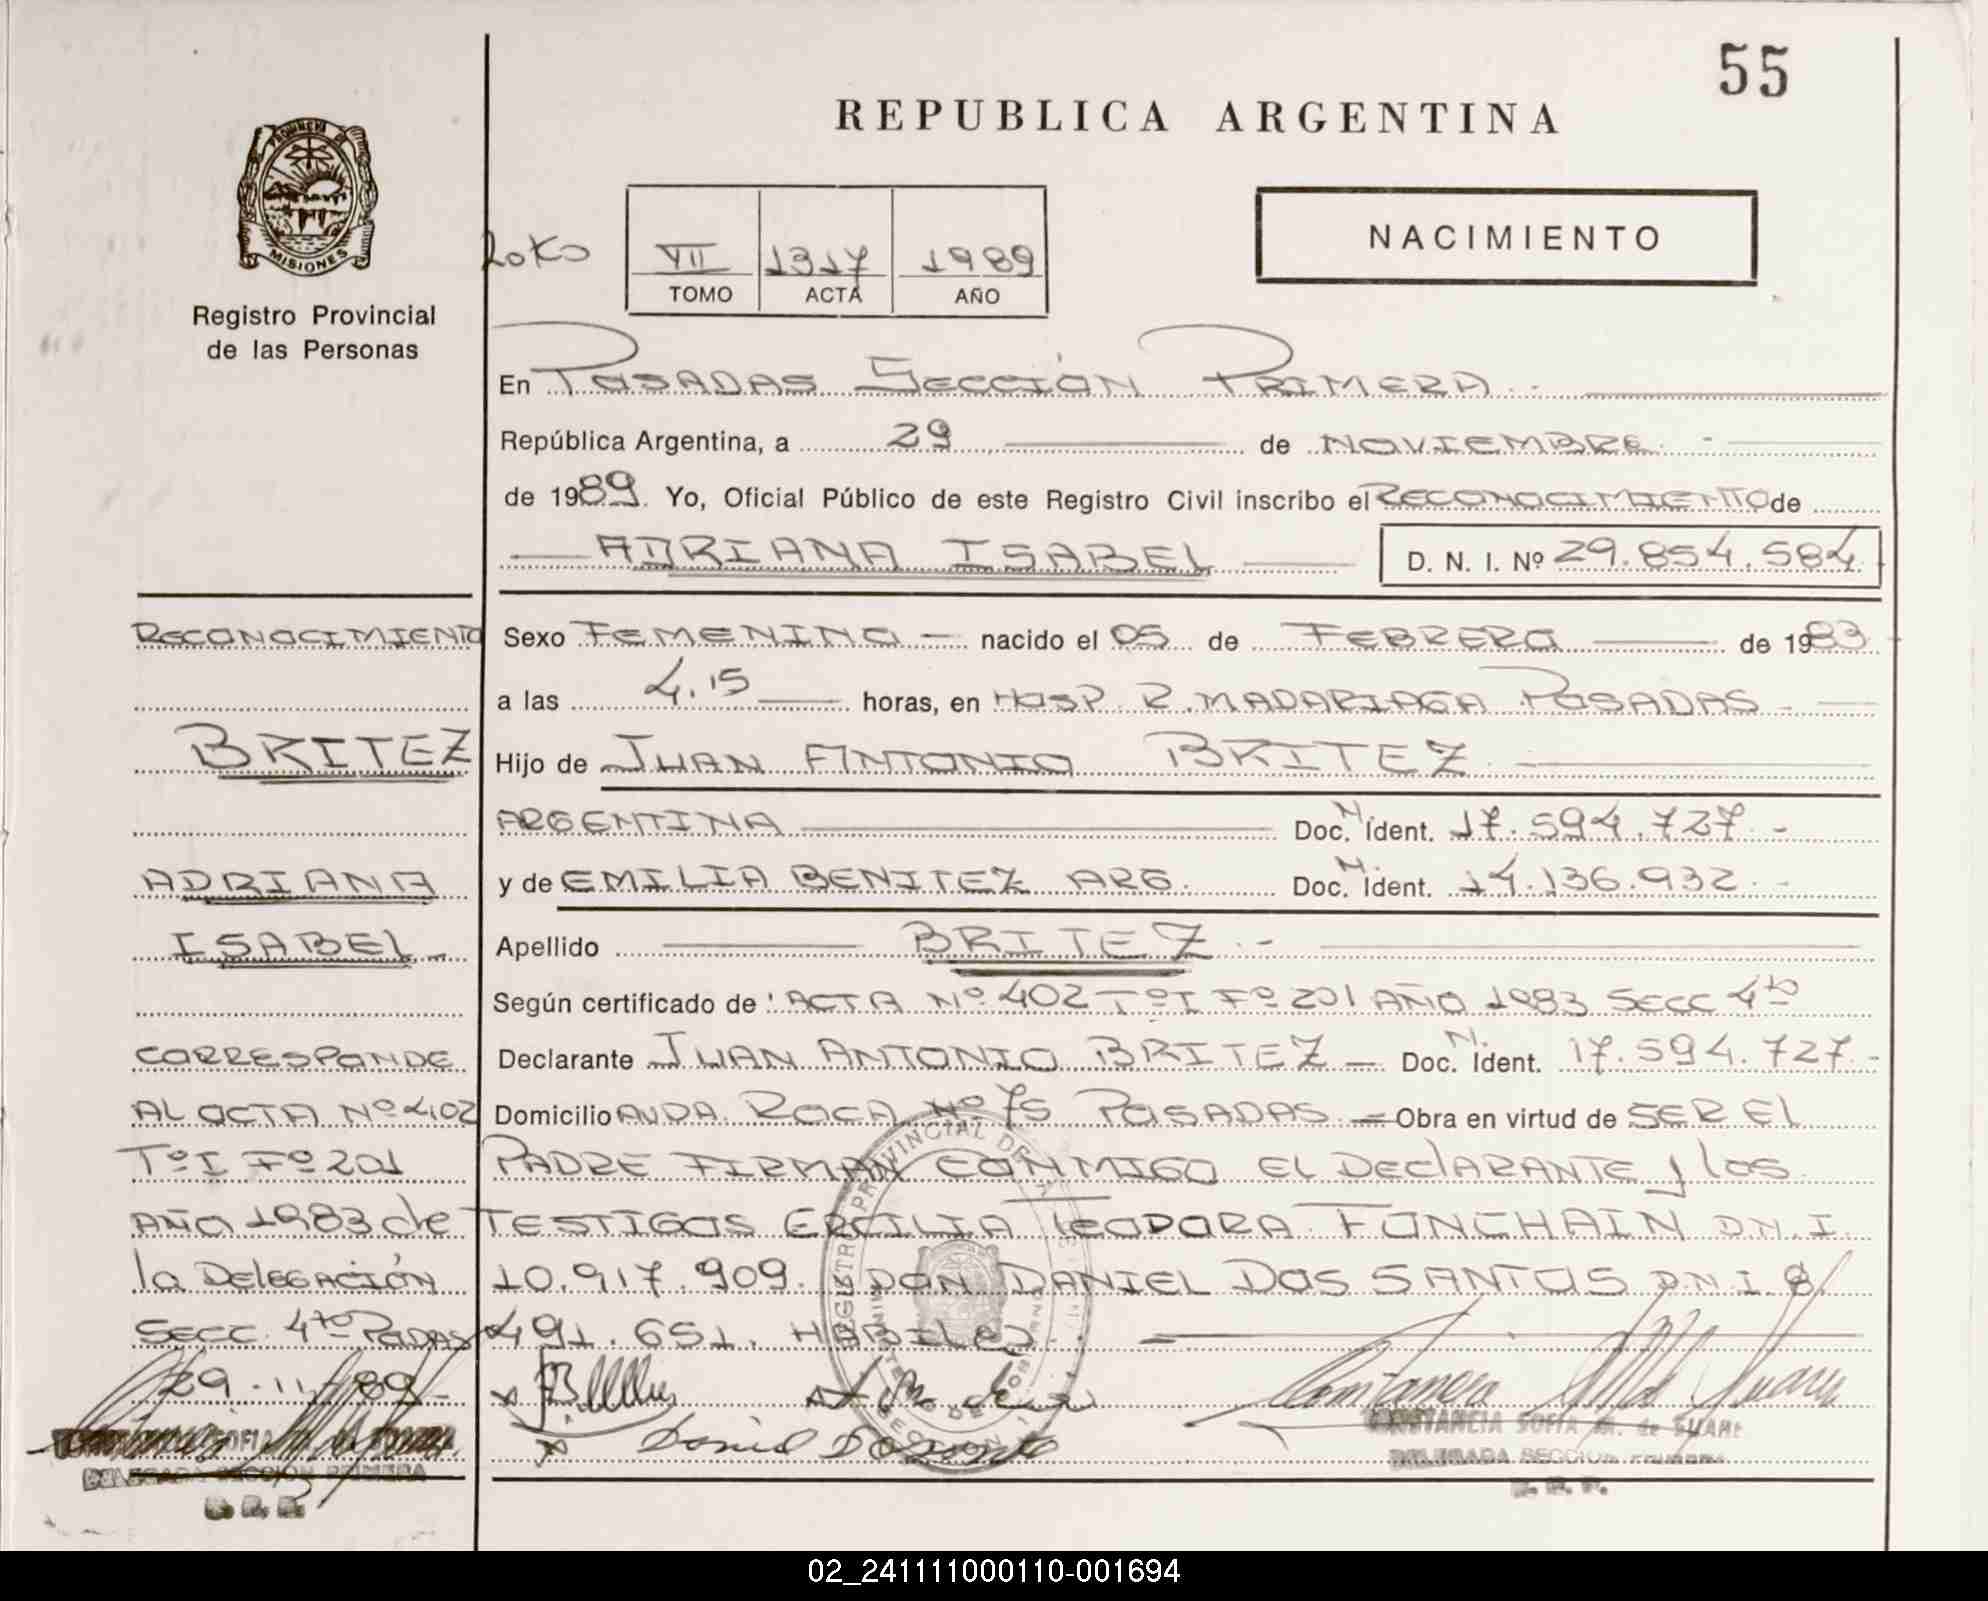 55
REPUBLICA ARGENTINA
PROVINCIA DE
MISIONES
Registro Provincial
de las Personas
VII 1317 1989
TOMO ACTA AÑO
NACIMIENTO
En POSADAS SECCIÓN PRIMERA.-
República Argentina, a 29 de NOVIEMBRE.-
de 1989. Yo, Oficial Público de este Registro Civil inscribo el RECONOCIMIENTO de
ADRIANA ISABEL D. N. I. Nº 29.854.584
Sexo FEMENINO - nacido el 05 de FEBRERO de 1983
a las 4.15 horas, en HOSP. R. MADARIAGA POSADAS -
Hijo de JUAN ANTONIO BRITEZ.
ARGENTINA Doc. N. Ident. 17.594.727.-
y de EMILIA BENITEZ ARG. Doc. N. Ident. 14.136.932.-
Apellido BRITEZ.-
Según certificado de: ACTA Nº 402 Tº I Fº 201 AÑO 1983 SECC 4to
Declarante JUAN ANTONIO BRITEZ - Doc. N. Ident. 17.594.727.-
Domicilio AVDA. ROCA Nº 75 POSADAS.= Obra en virtud de SER EL
PADRE FIRMAN CONMIGO EL DECLARANTE y los
TESTIGOS ERCILIA TEODORA FONCHAIN D.N.I.
10.917.909. DON DANIEL DOS SANTOS D.N.I. 8
491.651. HABILES
RECONOCIMIENTO
BRITEZ
ADRIANA
ISABEL.-
CORRESPONDE
AL ACTA Nº 402
Tº I Fº 201
AÑO 1983 de
la DELEGACIÓN
SECC. 4to POSADAS
29-11-89-
Daniel Dos Santos
CONSTANCIA SOFIA M. de SUAREZ
DELEGADA SECCION PRIMERA
R. P. P.
DELEGADA SECCION PRIMERA
R. P. P.
REGISTRO PROVINCIAL DE
02_241111000110-001694